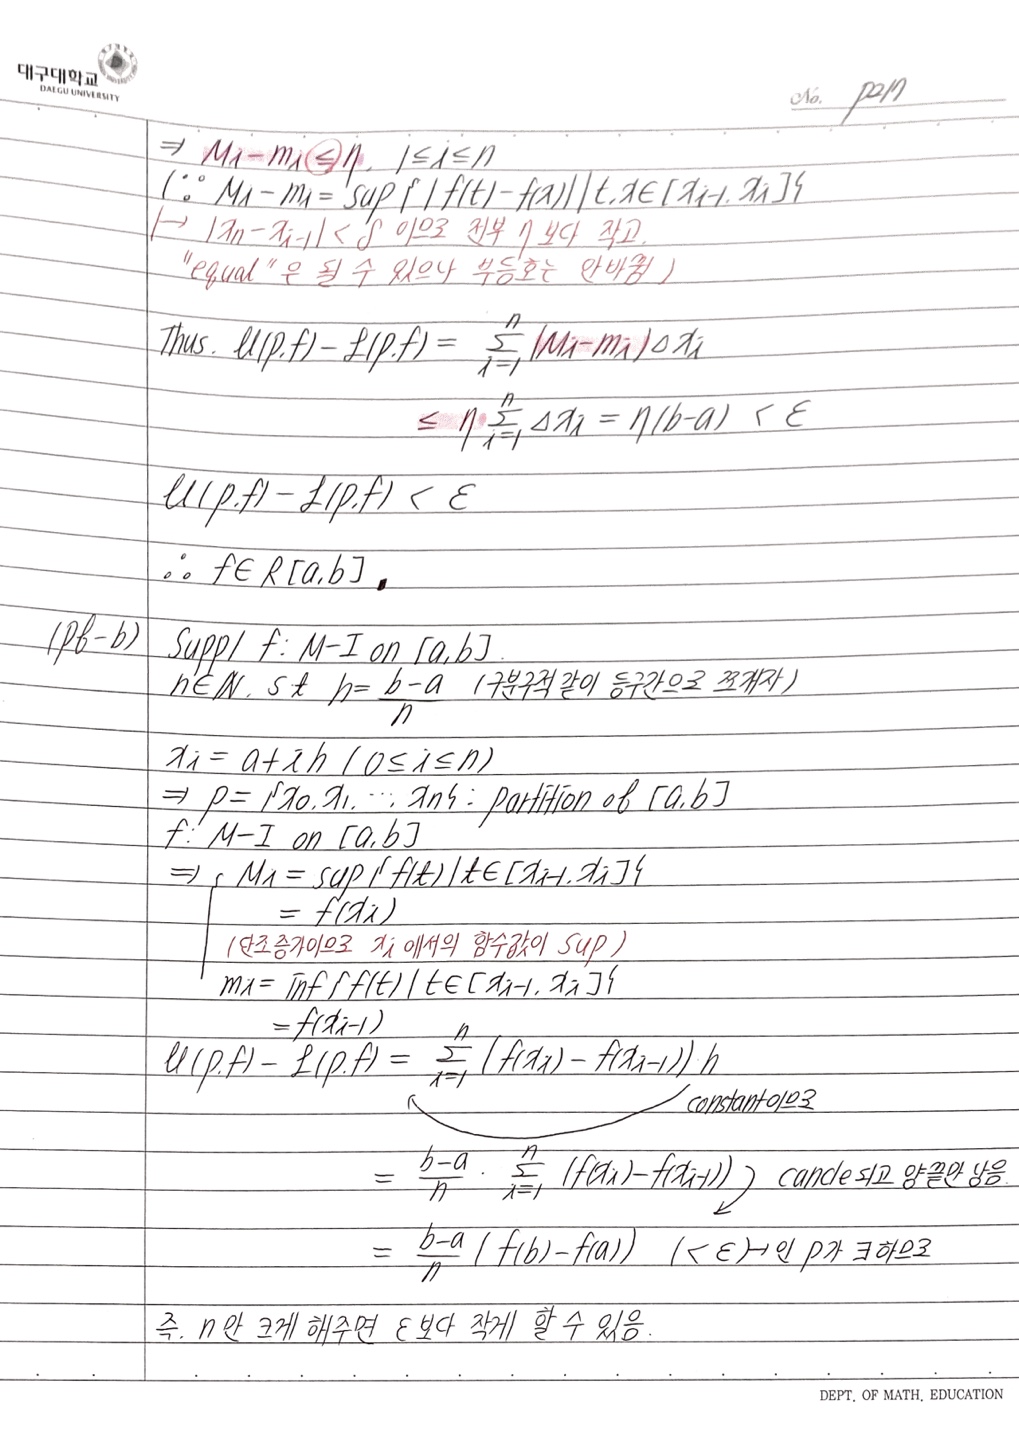 대구대학교
DAEGU UNIVERSITY
No.
⇒ Mi-mi ≤ η, 1≤i≤n
(∵ Mi-mi = sup{|f(t)-f(x)| | t,x∈[xi-1, xi]}
|→ |xn-xi-1| < δ 이므로 전부 η보다 작고,
"equal"은 될 수 있으나 부등호는 안바뀜)
Thus. U(p.f)-L(p.f) = Σ_{i=1}^{n} (Mi-mi)Δxi
≤ η Σ_{i=1}^{n} Δxi = η(b-a) < ε
U(p.f)-L(p.f) < ε
∴ f∈R[a,b].
(pf-b) Supp/ f: M-I on [a,b].
n∈N. st h= (b-a)/n (구분구적 같이 등구간으로 쪼개자)
xi = a+ih (0≤i≤n)
⇒ p={x0, x1, ..., xn}: partition of [a,b]
f: M-I on [a,b]
⇒ Mi = sup{f(t) | t∈[xi-1, xi]}
= f(xi)
(단조증가이므로 xi에서의 함수값이 sup)
mi = inf{f(t) | t∈[xi-1, xi]}
= f(xi-1)
U(p.f)-L(p.f) = Σ_{i=1}^{n} (f(xi)-f(xi-1)) h
constant이므로
= (b-a)/n · Σ_{i=1}^{n} (f(xi)-f(xi-1)) cancle되고 양끝만 남음.
= (b-a)/n (f(b)-f(a)) (<ε) → 인 p가 ∃하므로
즉. n만 크게 해주면 ε보다 작게 할 수 있음.
DEPT. OF MATH. EDUCATION